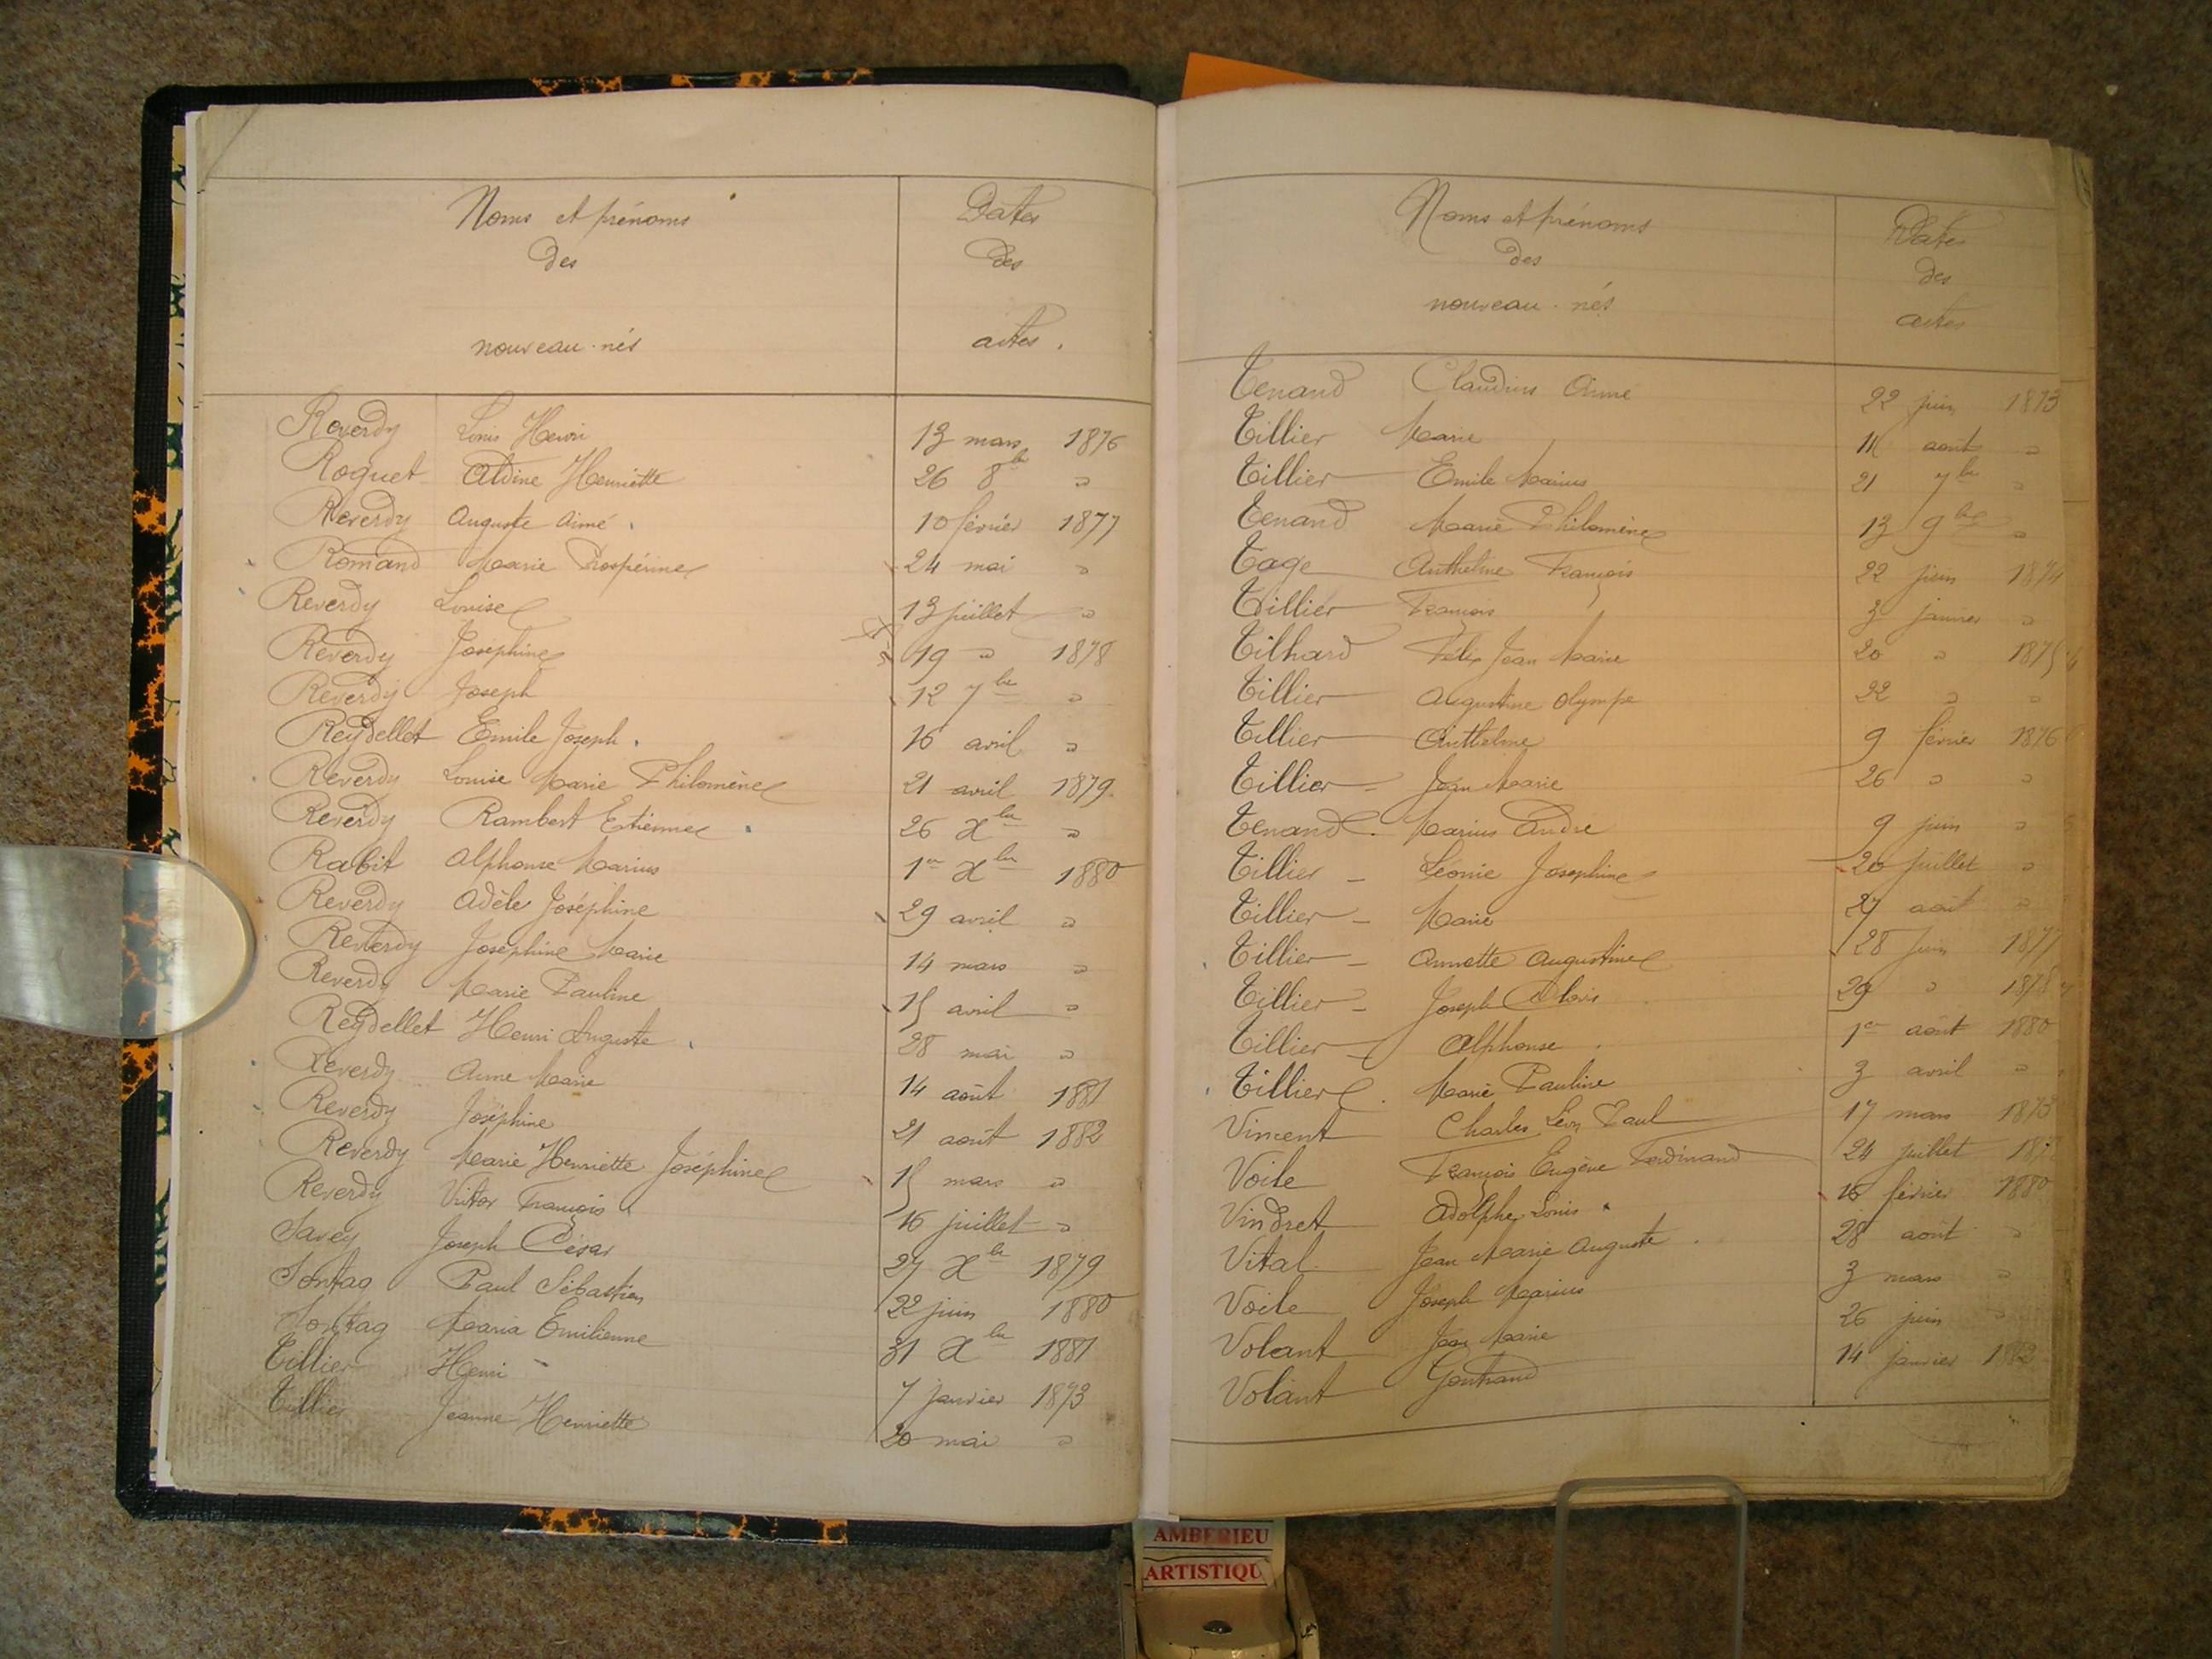 Noms et prénoms
des
nouveau-nés
Dates
des
actes.
Reverdy Louis Henri 13 mars 1876
Roguet Aldine Henriette 26 8bre "
Reverdy Auguste Aimé. 10 février 1877
Romand Marie Prospérine 24 mai "
Reverdy Louise 13 juillet "
Reverdy Joséphine 19 " 1878
Reverdy Joseph 12 7bre "
Reydellet Emile Joseph. 16 avril "
Reverdy Louise Marie Philomène 21 avril 1879
Reverdy Rambert Etienne 26 Xbre "
Rabit Alphonse Marius 1er Xbre 1880
Reverdy Adèle Joséphine 29 avril "
Reverdy Joséphine Marie 14 mars "
Reverdy Marie Pauline 15 avril "
Reydellet Henri Auguste 28 mai "
Reverdy Anne Marie 14 août 1881
Reverdy Joséphine 21 août 1882
Reverdy Marie Henriette Joséphine 15 mars "
Reverdy Victor François 16 juillet "
Savey Joseph César 27 Xbre 1879
Sontag Paul Sébastien 22 juin 1880
Sontag Maria Emilienne 31 Xbre 1881
Tillier Henri 7 janvier 1873
Tillier Jeanne Henriette 20 mai "
Noms et prénoms
des
nouveau-nés
Dates
des
actes
Tenand Claudius Aimé 22 juin 1873
Tillier Marie 11 août "
Tillier Emile Marius 21 7bre "
Tenand Marie Philomène 13 9bre "
Tage Anthelme François 22 juin 1874
Tillier François 3 janvier "
Tilhard Félix Jean Marie 20 " 1875
Tillier Augustine Olympe 22 " "
Tillier Anthelme 9 février 1876
Tillier Jean Marie 26 " "
Tenand Marius André 9 juin "
Tillier Léonie Joséphine 20 juillet "
Tillier Marie 27 août "
Tillier Annette Augustine 28 juin 1877
Tillier Joseph 29 " 1878
Tillier Alphonse 1er août 1880
Tillier Marie Pauline 3 avril "
Vincent Charles Léon Paul 17 mars 1873
Voile François Eugène Ferdinand 24 juillet
Vindret Adolphe Louis 16 février 1880
Vital Jean Marie Auguste 28 août "
Voile Joseph Marius 3 mars "
Volant Jean Marie 26 juin "
Volant Gontrand 14 janvier 1882
AMBERIEU
ARTISTIQU